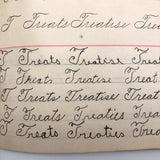 T Treats Treatise Treat
T Treats Treatise Treat
T Treats Treatise Treat
T Treats Treatise Treat
T Treats Treaties Treat
T Treats Treaties Treat